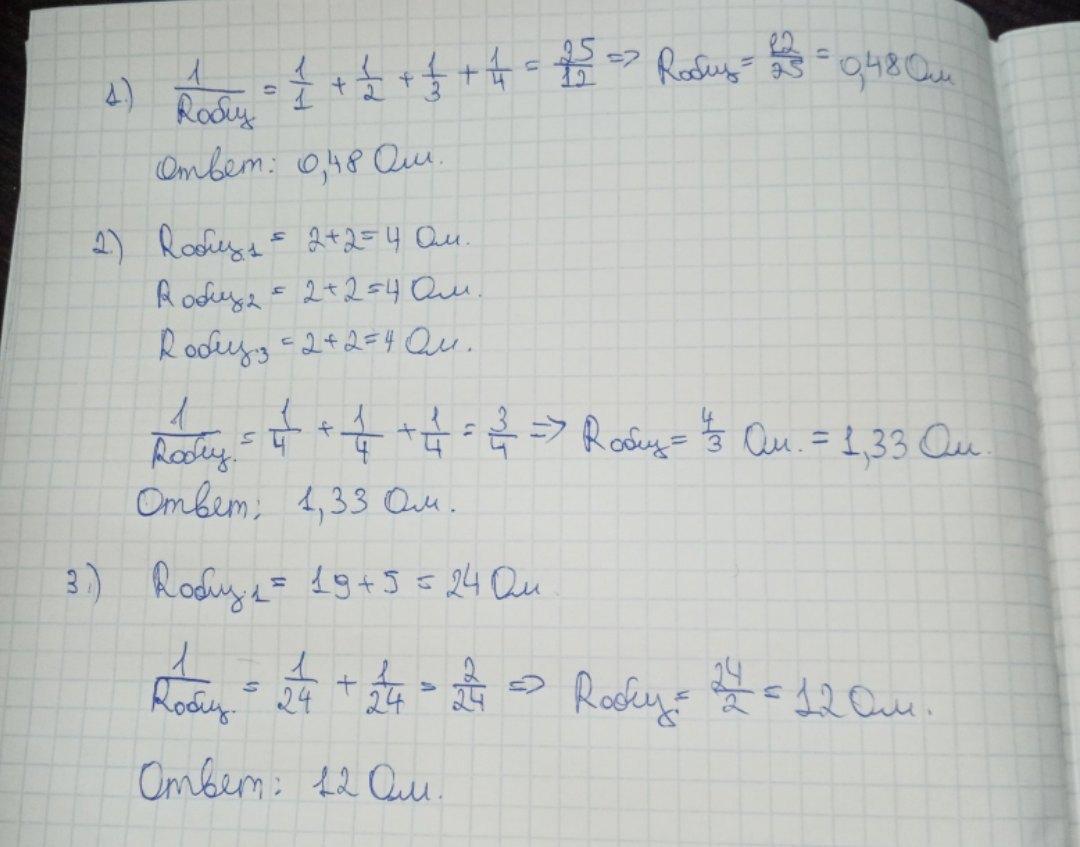 1.) 1/Rобщ = 1/1 + 1/2 + 1/3 + 1/4 = 25/12 => Rобщ = 12/25 = 0,48 Ом
Ответ: 0,48 Ом.
2.) Rобщ.1 = 2+2=4 Ом.
Rобщ2 = 2+2=4 Ом.
Rобщ.3 = 2+2=4 Ом.
1/Rобщ. = 1/4 + 1/4 + 1/4 = 3/4 => Rобщ = 4/3 Ом. = 1,33 Ом.
Ответ: 1,33 Ом.
3.) Rобщ.1 = 19+5 = 24 Ом
1/Rобщ. = 1/24 + 1/24 = 2/24 => Rобщ. = 24/2 = 12 Ом.
Ответ: 12 Ом.